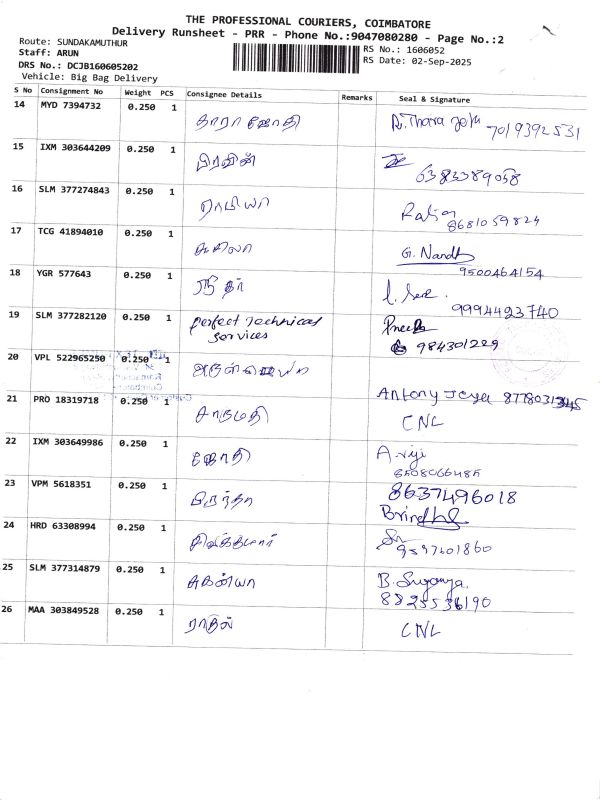 THE PROFESSIONAL COURIERS, COIMBATORE
Delivery Runsheet - PRR - Phone No.:9047080280 - Page No.:2
Route: SUNDAKAMUTHUR
RS No.: 1606052
Staff: ARUN
RS Date: 02-Sep-2025
DRS No.: DCJB160605202
Vehicle: Big Bag Delivery
S No Consignment No Weight PCS Consignee Details Remarks Seal & Signature
14 MYD 7394732 0.250 1 தாரா ஜோதி
7019392531
15 IXM 303644209 0.250 1 பிரவீன்
6383389058
16 SLM 377274843 0.250 1 ராபியா
8681059824
17 TCG 41894010 0.250 1 சுசிலா G. Nandh
9500464154
18 YGR 577643 0.250 1 ஸ்ரீதர்
9994423740
19 SLM 377282120 0.250 1 Perfect Technical
services
984301229
20 VPL 522965250 0.250 1
Antony Jeya
21 PRO 18319718 0.250 1 சாருமதி CNL
22 IXM 303649986 0.250 1 ஜோதி A. Viji
23 VPM 5618351 0.250 1 பிருந்தா 8637496018
Brindha
24 HRD 63308994 0.250 1 சிவக்குமார்
9597601860
25 SLM 377314879 0.250 1 சுகன்யா B. Suganya
8825536190
26 MAA 303849528 0.250 1 ராகுல் CNL